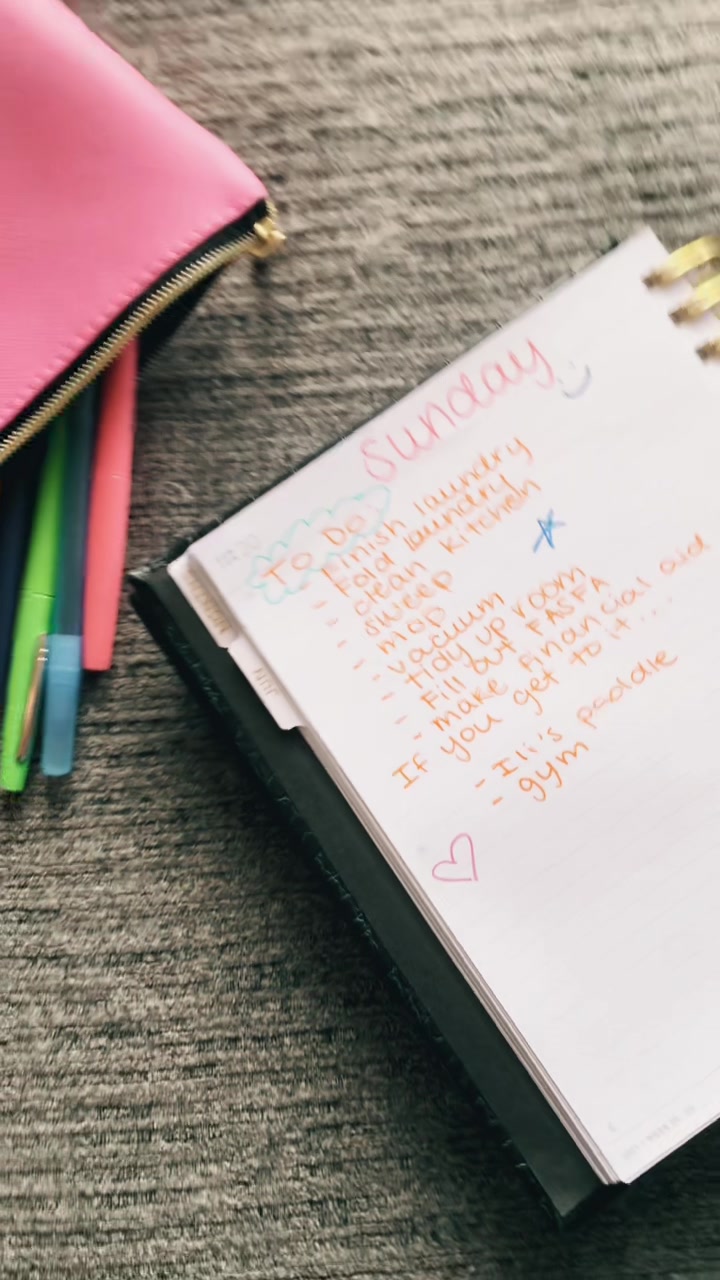 Sunday
To Do:
- Finish laundry
- Fold laundry
- clean kitchen
- sweep
- mop
- vacuum
- tidy up room
- Fill out FASFA
- make financial aid
If you get to it...
- Ili's paddle
- gym